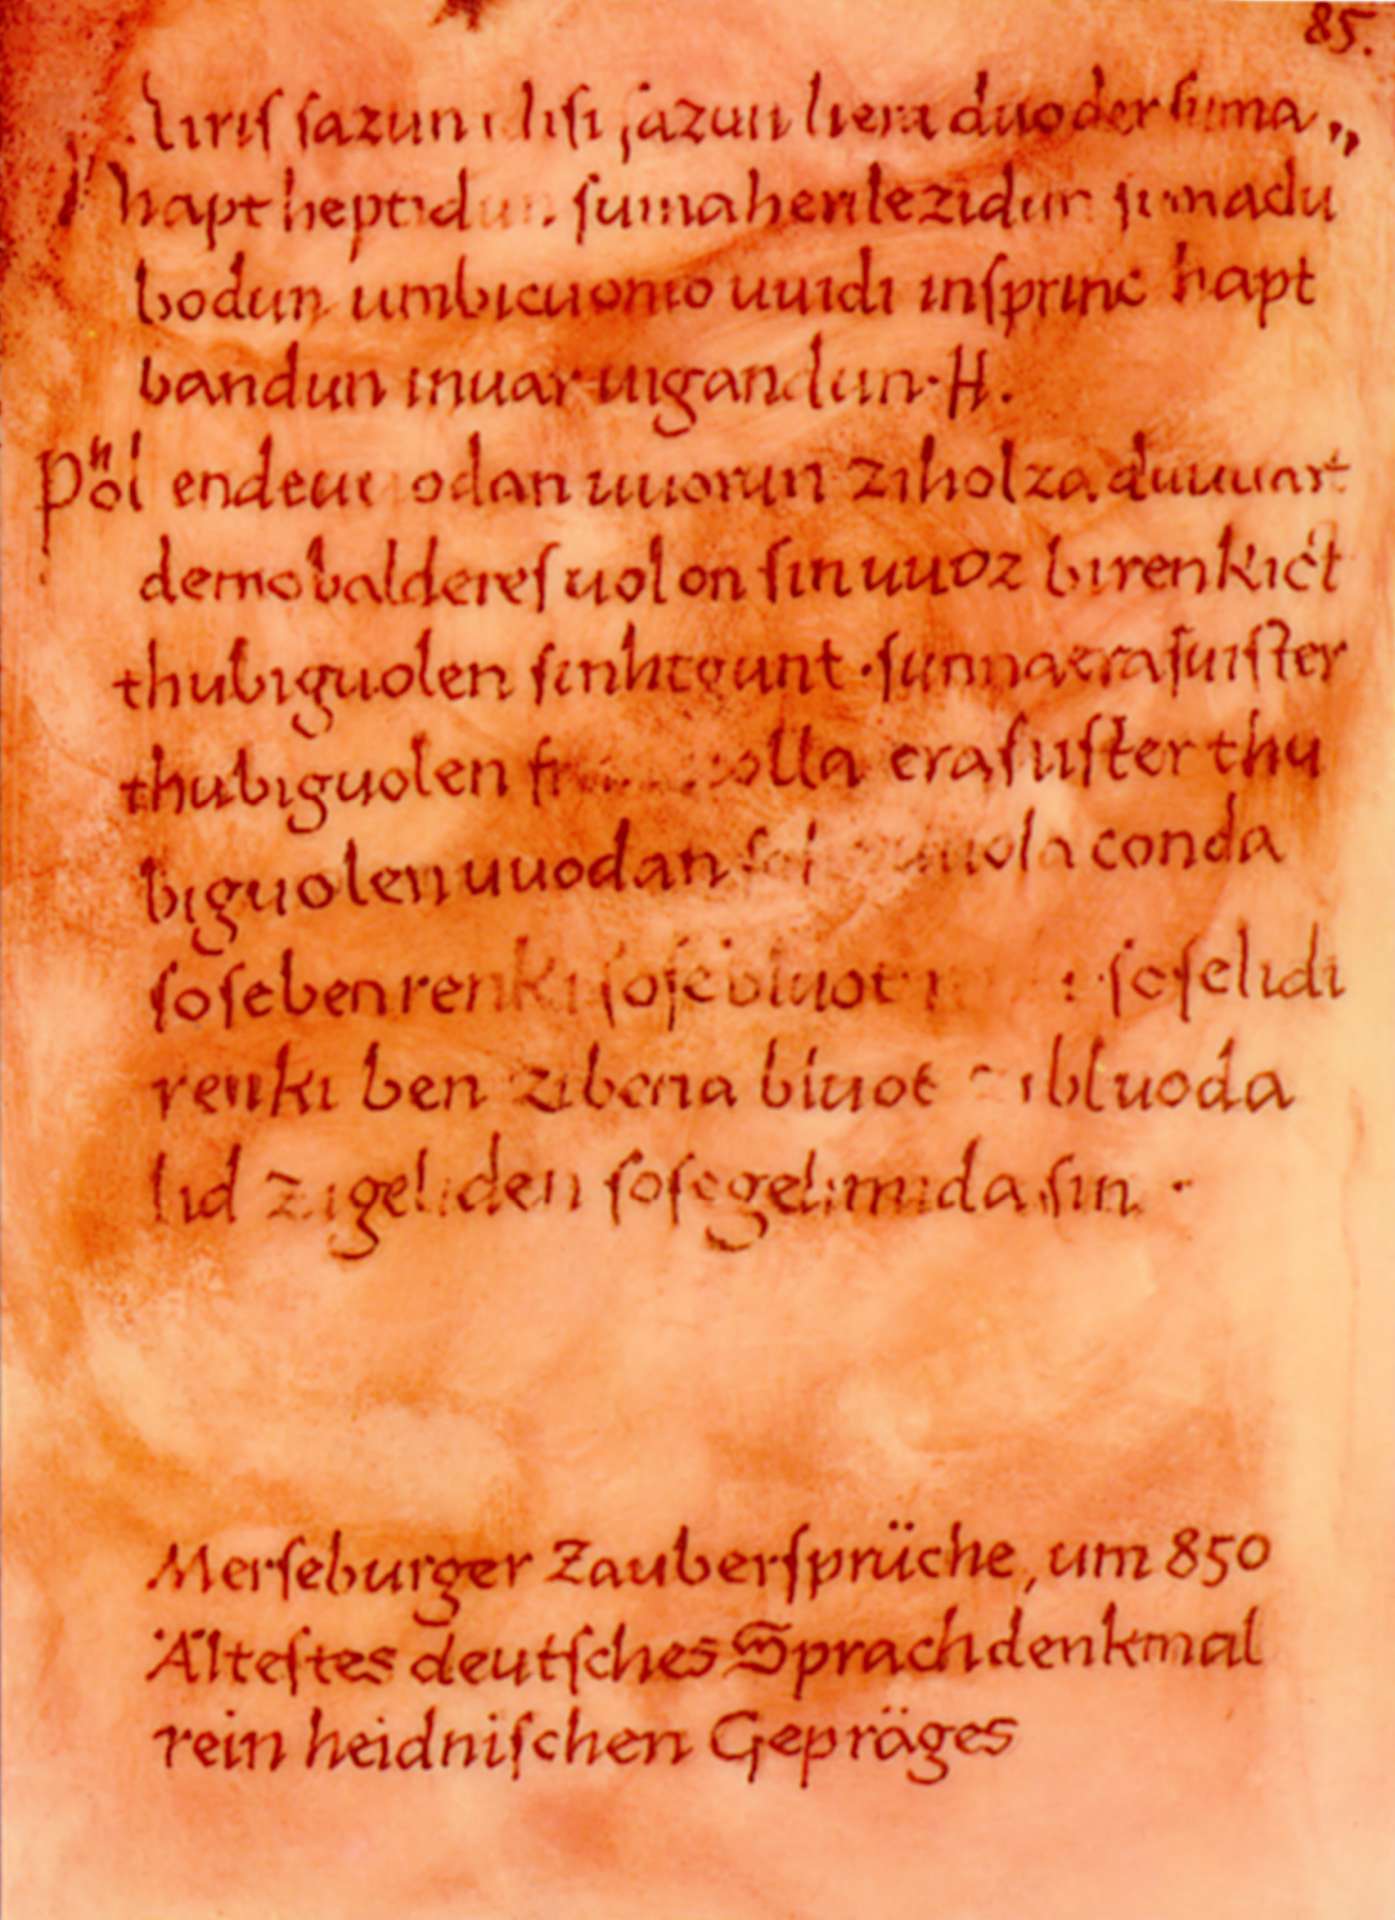 85.
sazun sazun hera duoder suma
hapt heptidun. suma heri lezidun sumadu
bodun umbicuonio uuidi insprinc hapt
bandun inuar uigandun· H.
Phol endeuuodan uuorun ziholza duuuart
demobalderes uolon sinuuoz birenkict
thubiguolen sinhtgunt · sunnaerasuister
thubiguolen erasuister thu
biguolen uuodan conda
sosebenrenki sose bluot soselidi
renki ben zibena bluot zibluoda
lid zigeliden sosegelimidasin ·
Merſeburger Zauberſprüche, um 850
Älteſtes deutſches Sprachdenkmal
rein heidniſchen Gepräges